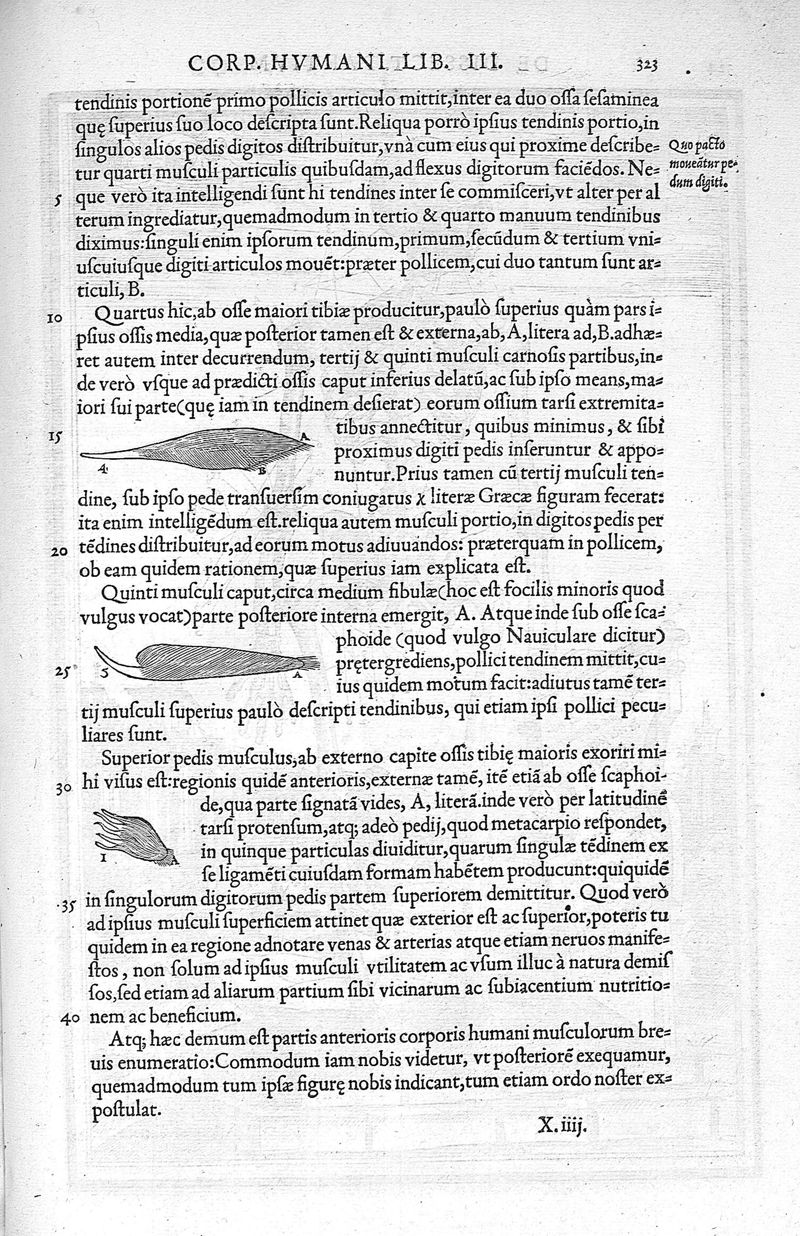 CORP. HVMANI LIB. III. 323
tendinis portionẽ primo pollicis articulo mittit,inter ea duo ossa sesaminea
quę superius suo loco descripta sunt.Reliqua porrò ipsius tendinis portio,in
singulos alios pedis digitos distribuitur,vnà cum eius qui proxime describe=
Quo pacto
tur quarti musculi particulis quibusdam,ad flexus digitorum faciẽdos. Ne=
moueãtur pe=
5 que verò ita intelligendi sunt hi tendines inter se commisceri,vt alter per al
dum digiti.
terum ingrediatur,quemadmodum in tertio & quarto manuum tendinibus
diximus:singuli enim ipsorum tendinum,primum,secũdum & tertium vni=
uscuiusque digiti articulos mouẽt:præter pollicem,cui duo tantum sunt ar=
ticuli, B.
10 Quartus hic,ab osse maiori tibiæ producitur,paulò superius quàm pars i=
psius ossis media,quæ posterior tamen est & externa,ab, A,litera ad,B.adhæ=
ret autem inter decurrendum, tertij & quinti musculi carnosis partibus,in=
de verò vsque ad prædicti ossis caput inferius delatũ,ac sub ipso means,ma=
iori sui parte(quę iam in tendinem desierat) eorum ossium tarsi extremita=
15 tibus annectitur, quibus minimus, & sibi
A
proximus digiti pedis inseruntur & appo=
4 B
nuntur.Prius tamen cũ tertij musculi ten=
dine, sub ipso pede transuersim coniugatus χ literæ Græcæ figuram fecerat:
ita enim intelligẽdum est.reliqua autem musculi portio,in digitos pedis per
20 tẽdines distribuitur,ad eorum motus adiuuandos: præterquam in pollicem,
ob eam quidem rationem,quæ superius iam explicata est.
Quinti musculi caput,circa medium fibulæ(hoc est focilis minoris quod
vulgus vocat)parte posteriore interna emergit, A. Atque inde sub osse sca=
phoide (quod vulgo Nauiculare dicitur)
25 prętergrediens,pollici tendinem mittit,cu=
5 A
ius quidem motum facit:adiutus tamẽ ter=
tij musculi superius paulò descripti tendinibus, qui etiam ipsi pollici pecu=
liares sunt.
Superior pedis musculus,ab externo capite ossis tibię maioris exoriri mi=
30 hi visus est:regionis quidẽ anterioris,externæ tamẽ, itẽ etiã ab osse scaphoi-
de,qua parte signatã vides, A, literã.inde verò per latitudinẽ
tarsi protensum,atq; adeò pedij,quod metacarpio respondet,
1 A
in quinque particulas diuiditur,quarum singulæ tẽdinem ex
se ligamẽti cuiusdam formam habẽtem producunt:quiquidẽ
35 in singulorum digitorum pedis partem superiorem demittitur. Quod verò
ad ipsius musculi superficiem attinet quæ exterior est ac superior,poteris tu
quidem in ea regione adnotare venas & arterias atque etiam neruos manife=
stos, non solum ad ipsius musculi vtilitatem ac vsum illuc à natura demis
sos,sed etiam ad aliarum partium sibi vicinarum ac subiacentium nutritio=
40 nem ac beneficium.
Atq; hæc demum est partis anterioris corporis humani musculorum bre=
uis enumeratio:Commodum iam nobis videtur, vt posteriorẽ exequamur,
quemadmodum tum ipsæ figurę nobis indicant,tum etiam ordo noster ex=
postulat.
X.iiij.